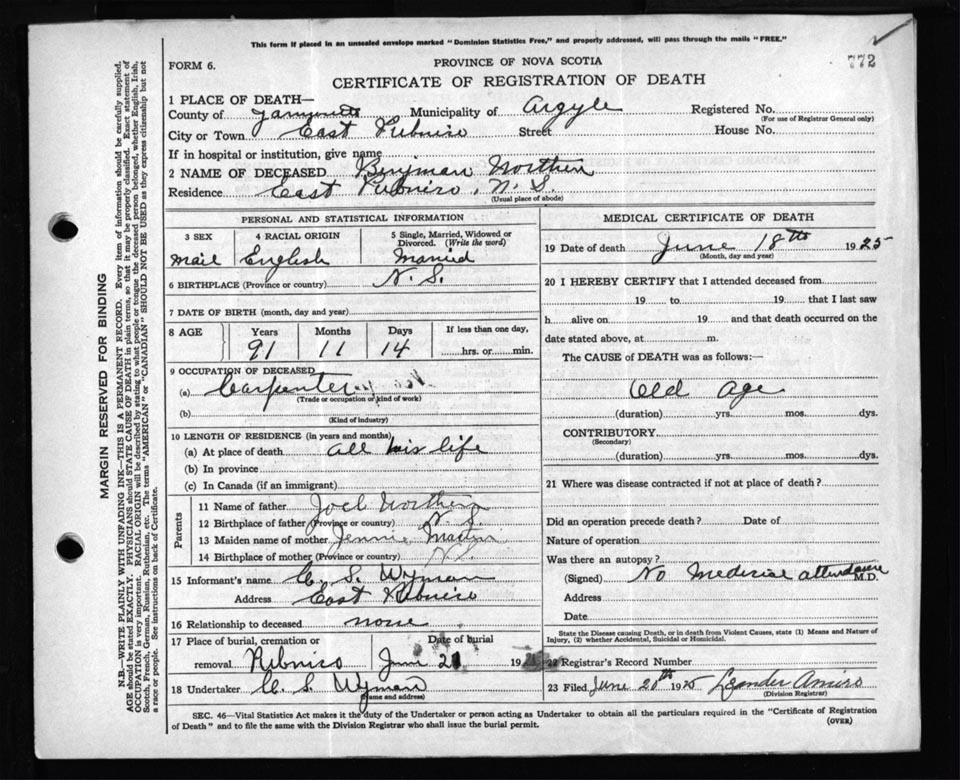 This form if placed in an unsealed envelope marked "Dominion Statistics Free," and properly addressed, will pass through the mails "FREE."
FORM 6.
PROVINCE OF NOVA SCOTIA
772
CERTIFICATE OF REGISTRATION OF DEATH
1 PLACE OF DEATH—
County of Yarmouth Municipality of Argyle Registered No.
(For use of Registrar General only)
City or Town East Pubnico Street House No.
If in hospital or institution, give name
2 NAME OF DECEASED Benjman Northen
Residence East Pubnico, N. S.
(Usual place of abode)
PERSONAL AND STATISTICAL INFORMATION
3 SEX 4 RACIAL ORIGIN 5 Single, Married, Widowed or Divorced. (Write the word)
mail English Married
6 BIRTHPLACE (Province or country) N. S.
7 DATE OF BIRTH (month, day and year)
8 AGE Years Months Days If less than one day,
91 11 14 hrs. or min.
9 OCCUPATION OF DECEASED
(a) Carpenter
(Trade or occupation or kind of work)
(b)
(Kind of industry)
10 LENGTH OF RESIDENCE (in years and months)
(a) At place of death all his life
(b) In province
(c) In Canada (if an immigrant)
Parents
11 Name of father Joel Northen
12 Birthplace of father (Province or country) N. S.
13 Maiden name of mother Jennie
14 Birthplace of mother (Province or country) N.S.
15 Informant's name C. S. Wyman
Address East Pubnico
16 Relationship to deceased none
17 Place of burial, cremation or Date of burial
removal Pubnico June 21 19
18 Undertaker C. S. Wyman
(Name and address)
MEDICAL CERTIFICATE OF DEATH
19 Date of death June 18th 1925
(Month, day and year)
20 I HEREBY CERTIFY that I attended deceased from
19 to 19 that I last saw
h alive on 19 and that death occurred on the
date stated above, at m.
The CAUSE of DEATH was as follows:—
Old Age
(duration) yrs. mos. dys.
CONTRIBUTORY
(Secondary)
(duration) yrs. mos. dys.
21 Where was disease contracted if not at place of death?
Did an operation precede death? Date of
Nature of operation
Was there an autopsy?
(Signed) No Medical attendance M.D.
Address
Date
State the Disease causing Death, or in death from Violent Causes, state (1) Means and Nature of
Injury, (2) whether Accidental, Suicidal or Homicidal.
22 Registrar's Record Number
23 Filed June 20th 1925 Leander Amiro
(Division Registrar)
SEC. 46—Vital Statistics Act makes it the duty of the Undertaker or person acting as Undertaker to obtain all the particulars required in the "Certificate of Registration
of Death" and to file the same with the Division Registrar who shall issue the burial permit.
(OVER)
MARGIN RESERVED FOR BINDING
N.B.—WRITE PLAINLY WITH UNFADING INK—THIS IS A PERMANENT RECORD. Every item of information should be carefully supplied.
AGE should be stated EXACTLY. PHYSICIANS should STATE CAUSE OF DEATH in plain terms, so that it may be properly classified. Exact statement of
OCCUPATION is very important. RACIAL ORIGIN will be described by stating to what people or tongue the deceased person belonged, whether English, Irish,
Scotch, French, German, Russian, Ruthenian, etc. The terms "AMERICAN" or "CANADIAN" SHOULD NOT BE USED as they express citizenship but not
a race or people. See instructions on back of Certificate.